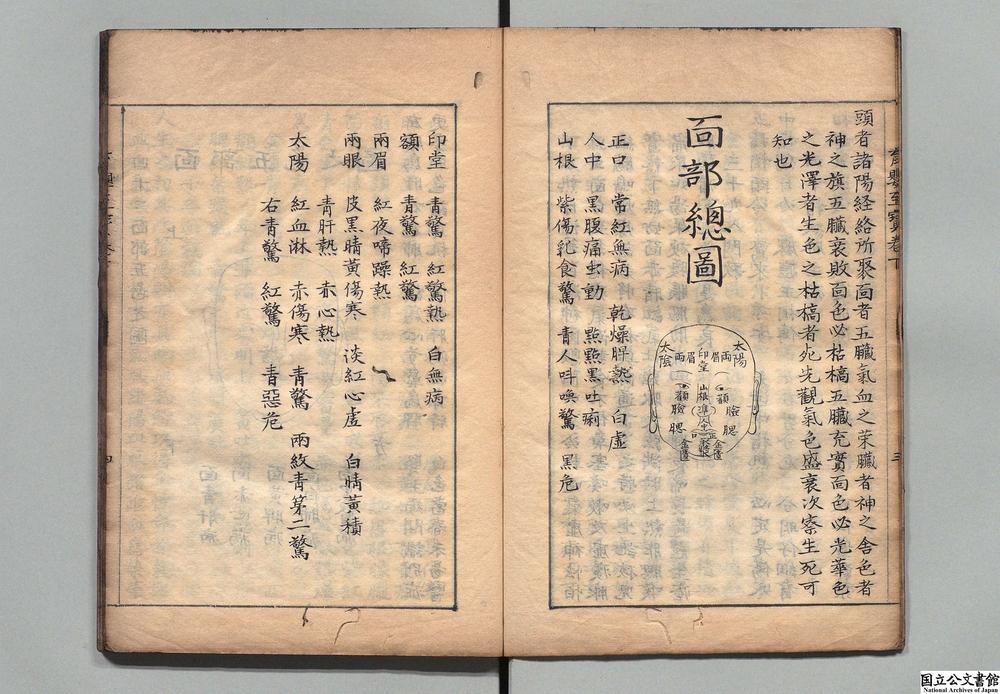 頭者諸陽経絡所聚面者五臟氣血之荣臟者神之舍色者
神之旗五臟衰敗面色必枯槁五臟充實面色必光華色
之光澤者生色之枯槁者死先觀氣色盛衰次察生死可
知也
面部總圖
太陽
太陰
兩眉
印堂
眉兩
山根
臉
腮
臉
腮
金匱
金匱
正口常紅無病 乾燥脾熱 白虛
人中 黑腹痛虫動 點點黑吐痢
山根 紫傷乳食驚 青人呌喚驚 黑危
印堂 青驚 紅驚熱 白無病
額 青驚 紅驚
兩眉 紅夜啼躁熱
兩眼 皮黑睛黃傷寒 淡紅心虛 白睛黃積
青肝熱 赤心熱
太陽 紅血淋 赤傷寒 青驚 兩紋青第二驚
右青驚 紅驚 青惡危
国立公文書館
National Archives of Japan